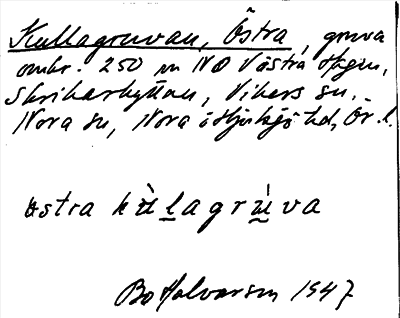 Kullagruvan, Östra, gruva
omkr. 250 m NO Västra Skgn,
Skrikarhyttan, Vikers sn.
Nora sn, Nora o Hjulsjö hd, Ör. l.
östra kùlagrùva
Bo Halvarson 1947